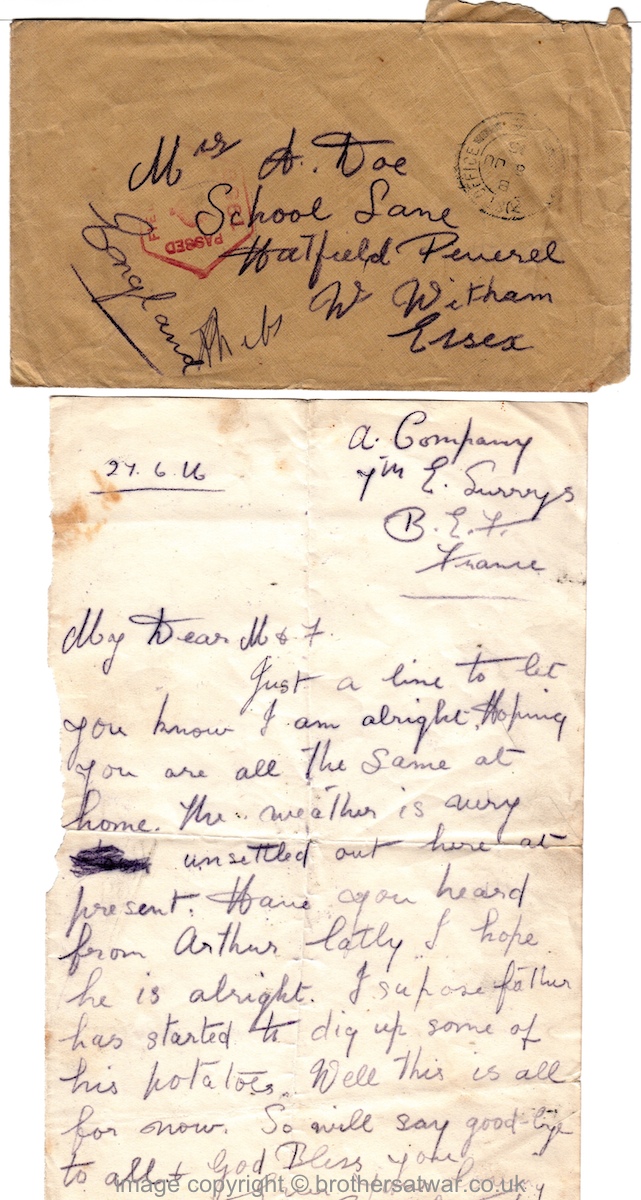 Mrs A. Doe
School Lane
Hatfield Peverel
Nr Witham
Essex
England
PASSED
OFFICE
27.6.16
A. Company
7th E. Surrys
B.E.F.
France
My Dear M & F.
Just a line to let
you know I am alright. Hoping
you are all the same at
home. The weather is very
unsettled out here at
present. Have you heard
from Arthur latly I hope
he is alright. I supose father
has started to dig up some of
his potatoes. Well this is all
for now. So will say good-bye
to all & God Bless you
image copyright © brothersatwar.co.uk